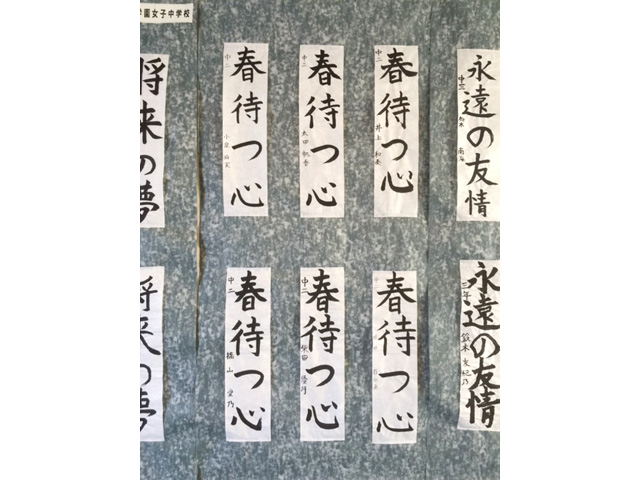 園女子中学校
永遠の友情
中三
春待つ心
中二
井上
春待つ心
中二
太田
春待つ心
中二
小泉
将来の夢
永遠の友情
三年
鈴木 友紀乃
春待つ心
春待つ心
中二
柴田
春待つ心
中二
橋山 愛乃
将来の夢